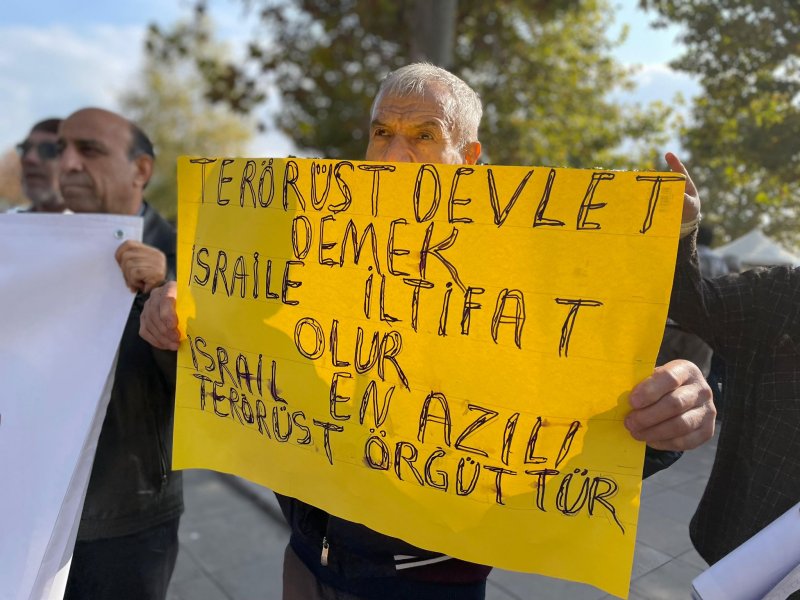 TERÖRÜST DEVLET
DEMEK
İSRAİLE İLTİFAT
OLUR
İSRAİL EN AZILI
TERÖRÜST ÖRGÜTTÜR